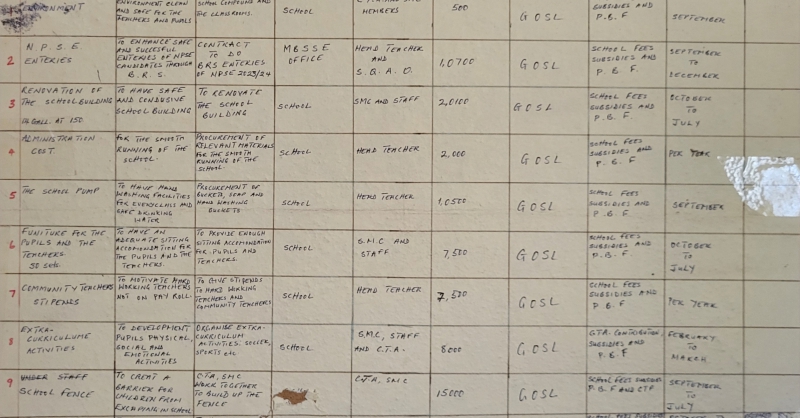 ENVIRONMENT
ENVIRONMENT CLEAN
AND SAFE FOR THE
TEACHERS AND PUPILS
SCHOOL COMPOUND AND
THE CLASSROOMS.
SCHOOL
MEMBERS
500
GOSL
SUBSIDIES AND
P.B.F
SEPTEMBER
2
N.P.S.E.
ENTERIES
TO ENHANCE SAFE
AND SUCCESFUL
ENTERIES OF NPSE
CANDIDATES THROUGH
B.R.S.
CONTRACT
TO DO
BRS ENTERIES
OF NPSE 2023/24
MBSSE
OFFICE
HEAD TEACHER
AND
S.Q.A.O.
1,0700
GOSL
SCHOOL FEES
SUBSIDIES AND
P.B.F.
SEPTEMBER
TO
DECEMBER
3
RENOVATION OF
THE SCHOOL BUILDING
14 GALL. AT 150
TO HAVE SAFE
AND CONDUSIVE
SCHOOL BUILDING
TO RENOVATE
THE SCHOOL
BUILDING
SCHOOL
SMC AND STAFF
2,0100
GOSL
SCHOOL FEES
SUBSIDIES AND
P.B.F.
OCTOBER
TO
JULY
4
ADMINISTRATION
COST
FOR THE SMOOTH
RUNNING OF THE
SCHOOL.
PROCUREMENT OF
RELEVANT MATERIALS
FOR THE SMOOTH
RUNNING OF THE
SCHOOL.
SCHOOL
HEAD TEACHER
2,000
GOSL
SCHOOL FEES
SUBSIDIES AND
P.B.F
PER YEAR
5
THE SCHOOL PUMP
TO HAVE HAND
WASHING FACILITIES
FOR EVERYCLASS AND
SAFE DRINKING
WATER
PROCUREMENT OF
BUCKETS, SOAP AND
HAND WASHING
BUCKETS
SCHOOL
HEAD TEACHER
1,0500
GOSL
SCHOOL FEES
SUBSIDIES AND
P.B.F.
SEPTEMBER
6
FUNITURE FOR THE
PUPILS AND THE
TEACHERS
50 sets
TO HAVE AN
ADEQUATE SITTING
ACCOMONDATION FOR
THE PUPILS AND THE
TEACHERS.
TO PROVIDE ENOUGH
SITTING ACCOMONDATION
FOR PUPILS AND
TEACHERS.
SCHOOL
S.M.C AND
STAFF
7,500
GOSL
SCHOOL FEES
SUBSIDIES AND
P.B.F.
OCTOBER
TO
JULY
7
COMMUNITY TEACHERS
STIPENDS
TO MOTIVATE HARD
WORKING TEACHERS
NOT ON PAY ROLL.
TO GIVE STIPENDS
TO HARD WORKING
TEACHERS AND
COMMUNITY TEACHERS
SCHOOL
HEAD TEACHER
2,500
GOSL
SCHOOL FEES
SUBSIDIES AND
P.B.F
PER YEAR
8
EXTRA-
CURRICULUME
ACTIVITIES
TO DEVELOPMENT
PUPILS PHYSICAL,
SOCIAL AND
EMOTIONAL
ACTIVITIES
ORGANISE EXTRA-
CURRICULUM
ACTIVITIES: SOCCER,
SPORTS etc
SCHOOL
S.M.C, STAFF
AND C.T.A.
8000
GOSL
C.T.A. CONTRIBUTION,
SUBSIDIES AND
P.B.F
FEBRUARY
TO
MARCH
9
SCHOOL FENCE
TO CREAT A
BARRIER FOR
CHILDREN FROM
IN SCHOOL
C.T.A, SMC
WORK TOGETHER
TO BUILD UP THE
FENCE
C.T.A, SMC
15000
GOSL
SCHOOL FEES
P.B.F AND CTA
SEPTEMBER
TO
JULY